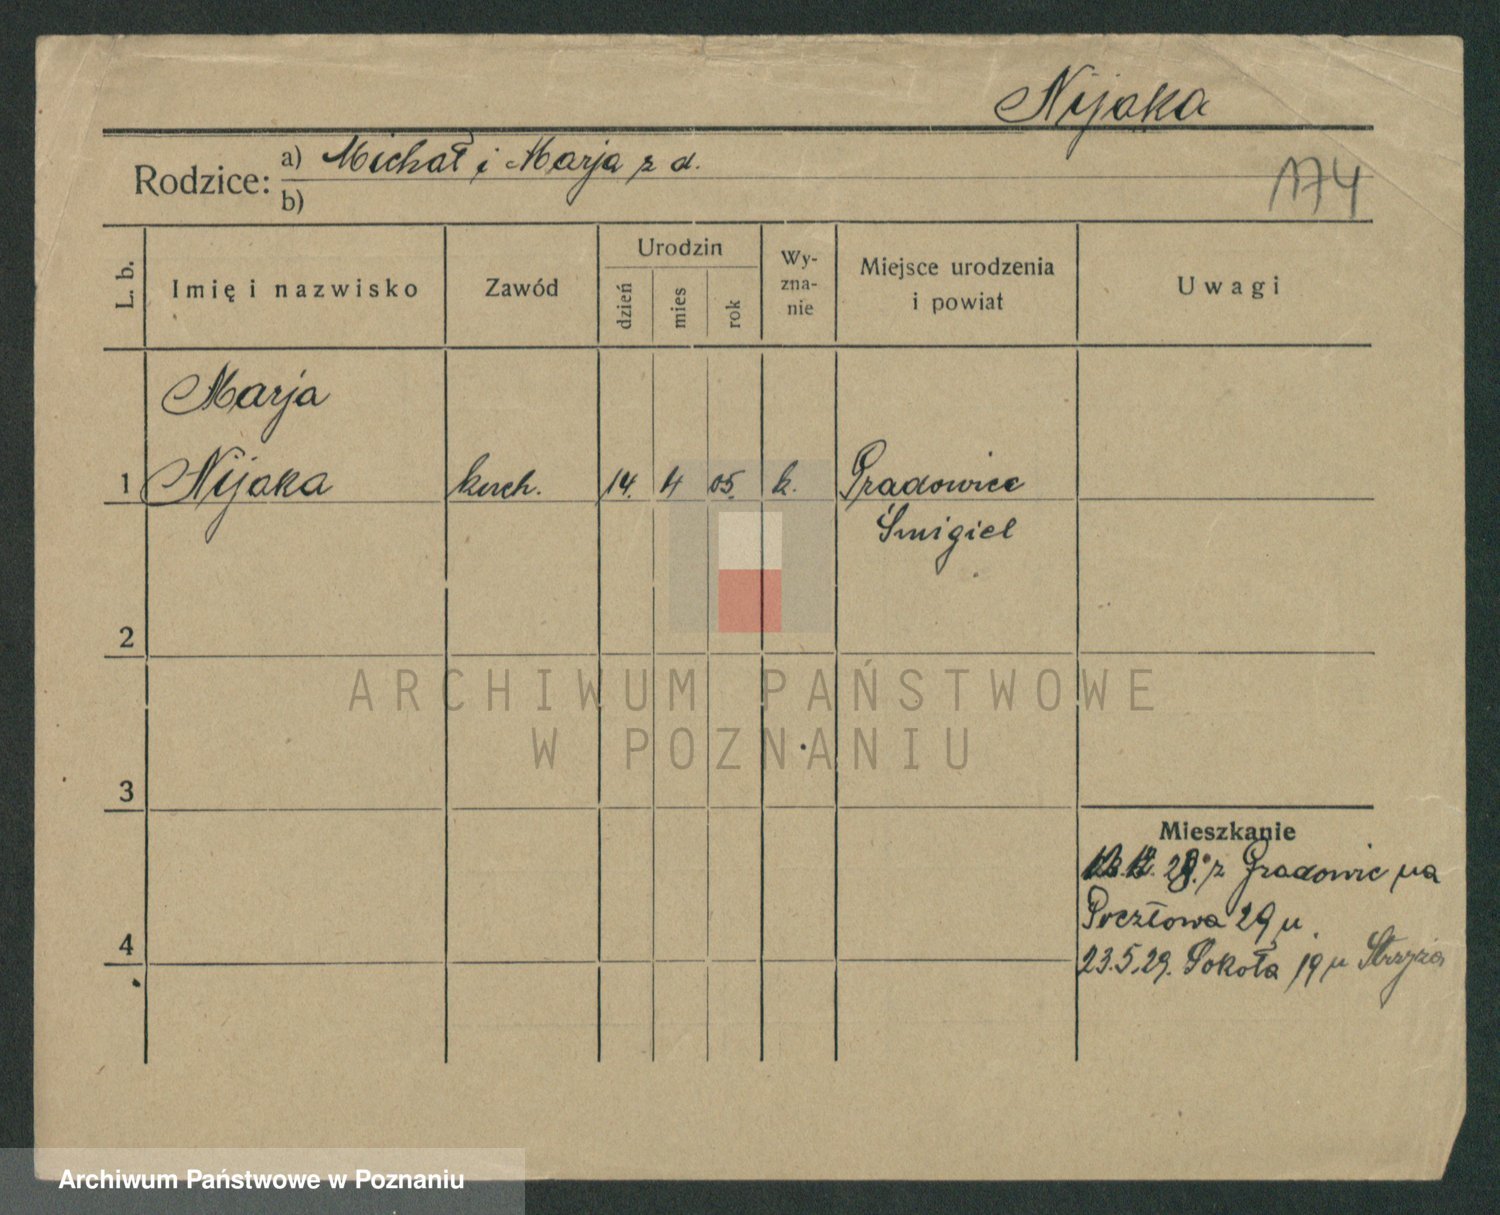 Nijaka
Rodzice: a) Michał i Marja z d.
b)
174
L. b.
Imię i nazwisko
Zawód
Urodzin
dzień
mies
rok
Wy-
zna-
nie
Miejsce urodzenia
i powiat
Uwagi
Marja
1 Nijaka kuch. 14. 4 05. k. Gradowice
Śmigiel
2
ARCHIWUM PAŃSTWOWE
W POZNANIU
3
Mieszkanie
28. z Gradowic na
Pocztowa 29 u.
4
23.5.29. Sokoła 19 u
Archiwum Państwowe w Poznaniu